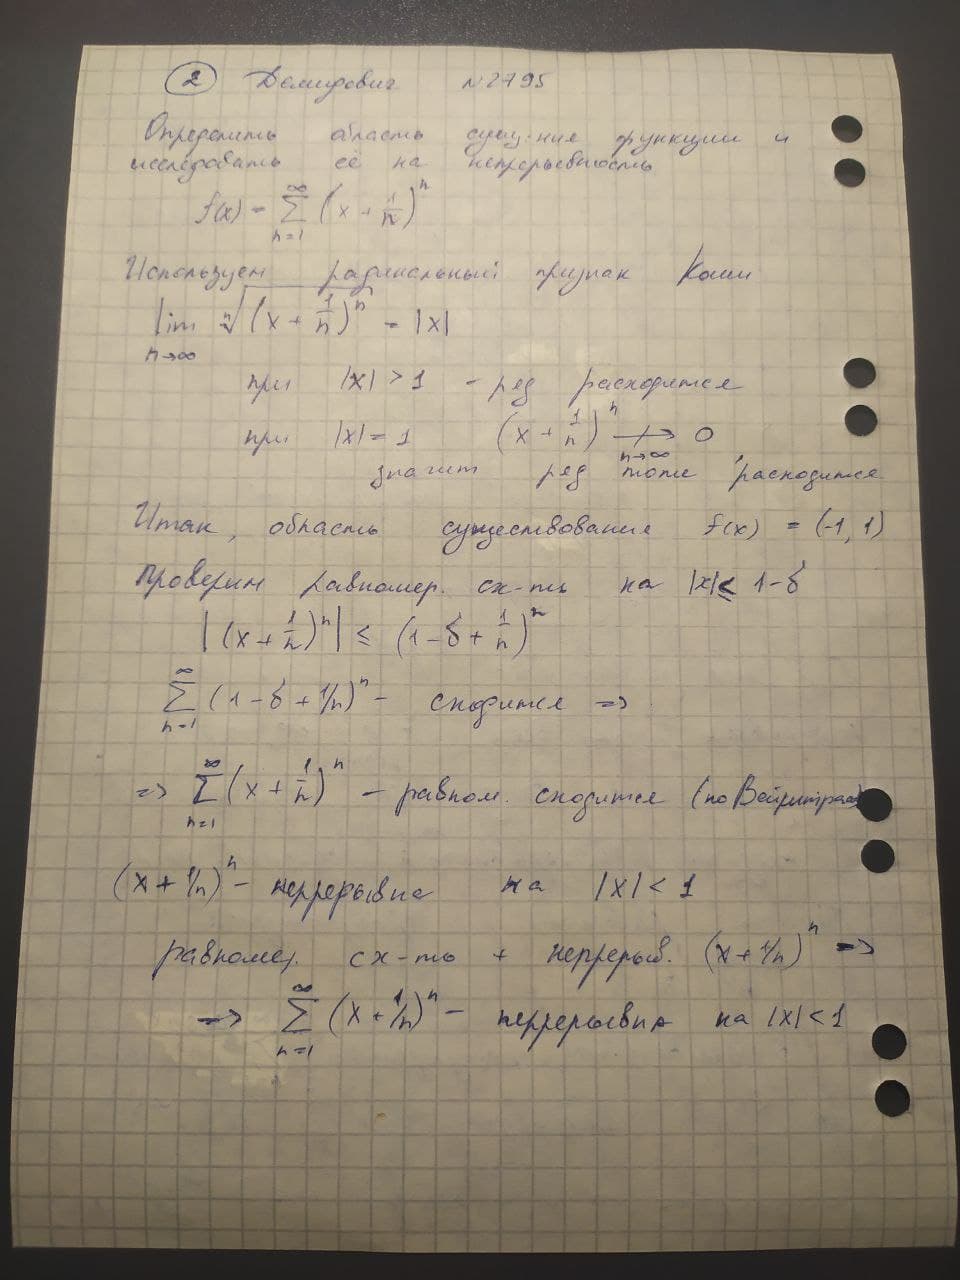 2 Демидович №2795
Определить область сущ-ния функции и
исследовать её на непрерывность
f(x) = ∑_{n=1}^{∞} (x + 1/n)^n
Используем радикальный признак Коши
lim_{n→∞} ⁿ√((x + 1/n)^n) = |x|
при |x| > 1 - ряд расходится
при |x| = 1 (x + 1/n)^n ↛_{n→∞} 0
значит ряд тоже расходится
Итак, область существования f(x) = (-1, 1)
Проверим равномер. сх-ть на |x| ≤ 1-δ
|(x + 1/n)^n| ≤ (1-δ + 1/n)^n
∑_{n=1}^{∞} (1-δ + 1/n)^n - сходится =>
=> ∑_{n=1}^{∞} (x + 1/n)^n - равном. сходится (по Вейерштрас
(x + 1/n)^n - непрерывна на |x| < 1
равномер. сх-ть + непрерыв. (x + 1/n)^n =>
=> ∑_{n=1}^{∞} (x + 1/n)^n - непрерывна на |x| < 1